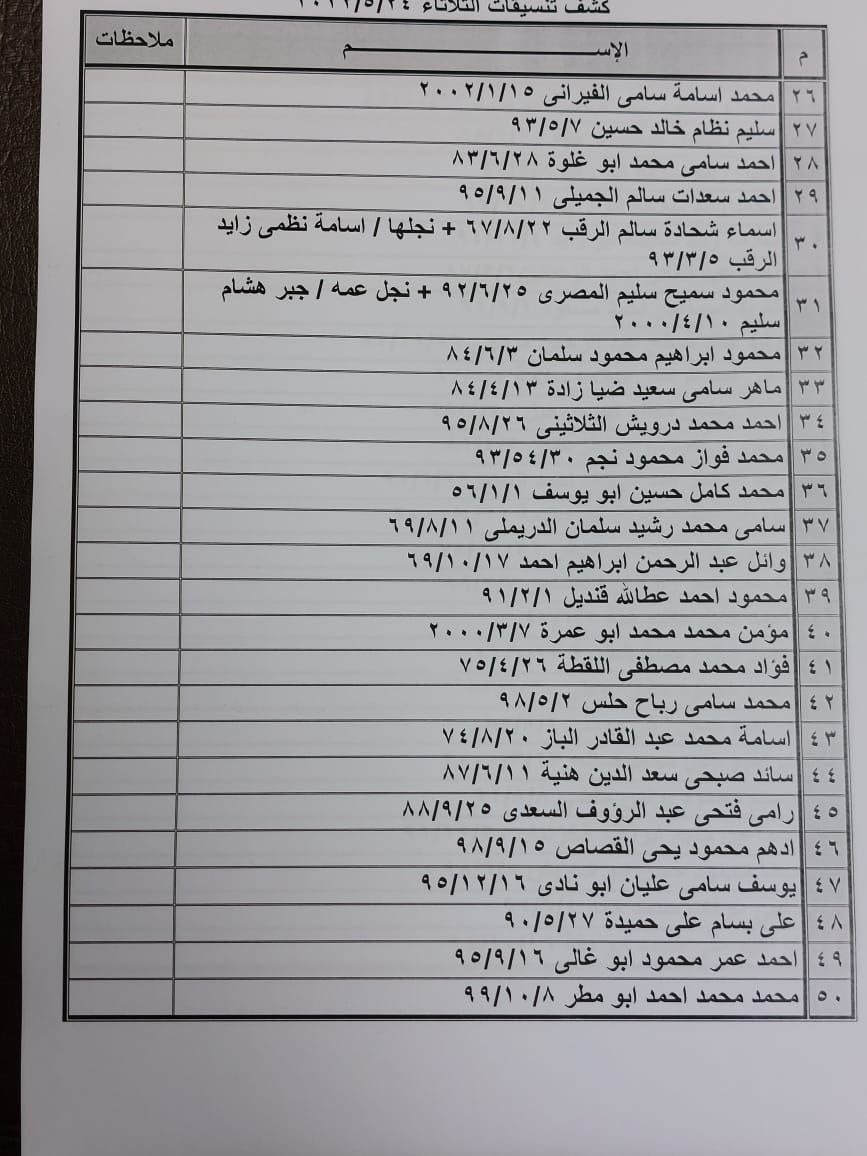 كشف تنسيقات الثلاثاء ٢٠٢٢/٥/٢٤
م الإســــم ملاحظات
٢٦ محمد اسامة سامى الفيرانى ٢٠٠٢/١/١٥
٢٧ سليم نظام خالد حسين ٩٣/٥/٧
٢٨ احمد سامى محمد ابو غلوة ٨٣/٦/٢٨
٢٩ احمد سعدات سالم الجميلى ٩٥/٩/١١
٣٠ اسماء شحادة سالم الرقب ٦٧/٨/٢٢ + نجلها / اسامة نظمى زايد
الرقب ٩٣/٣/٥
٣١ محمود سميح سليم المصرى ٩٢/٦/٢٥ + نجل عمه / جبر هشام
سليم ٢٠٠٠/٤/١٠
٣٢ محمود ابراهيم محمود سلمان ٨٤/٦/٣
٣٣ ماهر سامى سعيد ضيا زادة ٨٤/٤/١٣
٣٤ احمد محمد درويش الثلاثينى ٩٥/٨/٢٦
٣٥ محمد فواز محمود نجم ٩٣/٥٤/٣٠
٣٦ محمد كامل حسين ابو يوسف ٥٦/١/١
٣٧ سامى محمد رشيد سلمان الدريملى ٦٩/٨/١١
٣٨ وائل عبد الرحمن ابراهيم احمد ٦٩/١٠/١٧
٣٩ محمود احمد عطالله قنديل ٩١/٢/١
٤٠ مؤمن محمد محمد ابو عمرة ٢٠٠٠/٣/٧
٤١ فؤاد محمد مصطفى اللقطة ٧٥/٤/٢٦
٤٢ محمد سامى رباح حلس ٩٨/٥/٢
٤٣ اسامة محمد عبد القادر الباز ٧٤/٨/٢٠
٤٤ سائد صبحى سعد الدين هنية ٨٧/٦/١١
٤٥ رامى فتحى عبد الرؤوف السعدى ٨٨/٩/٢٥
٤٦ ادهم محمود يحى القصاص ٩٨/٩/١٥
٤٧ يوسف سامى عليان ابو نادى ٩٥/١٢/١٦
٤٨ على بسام على حميدة ٩٠/٥/٢٧
٤٩ احمد عمر محمود ابو غالى ٩٥/٩/١٦
٥٠ محمد محمد احمد ابو مطر ٩٩/١٠/٨